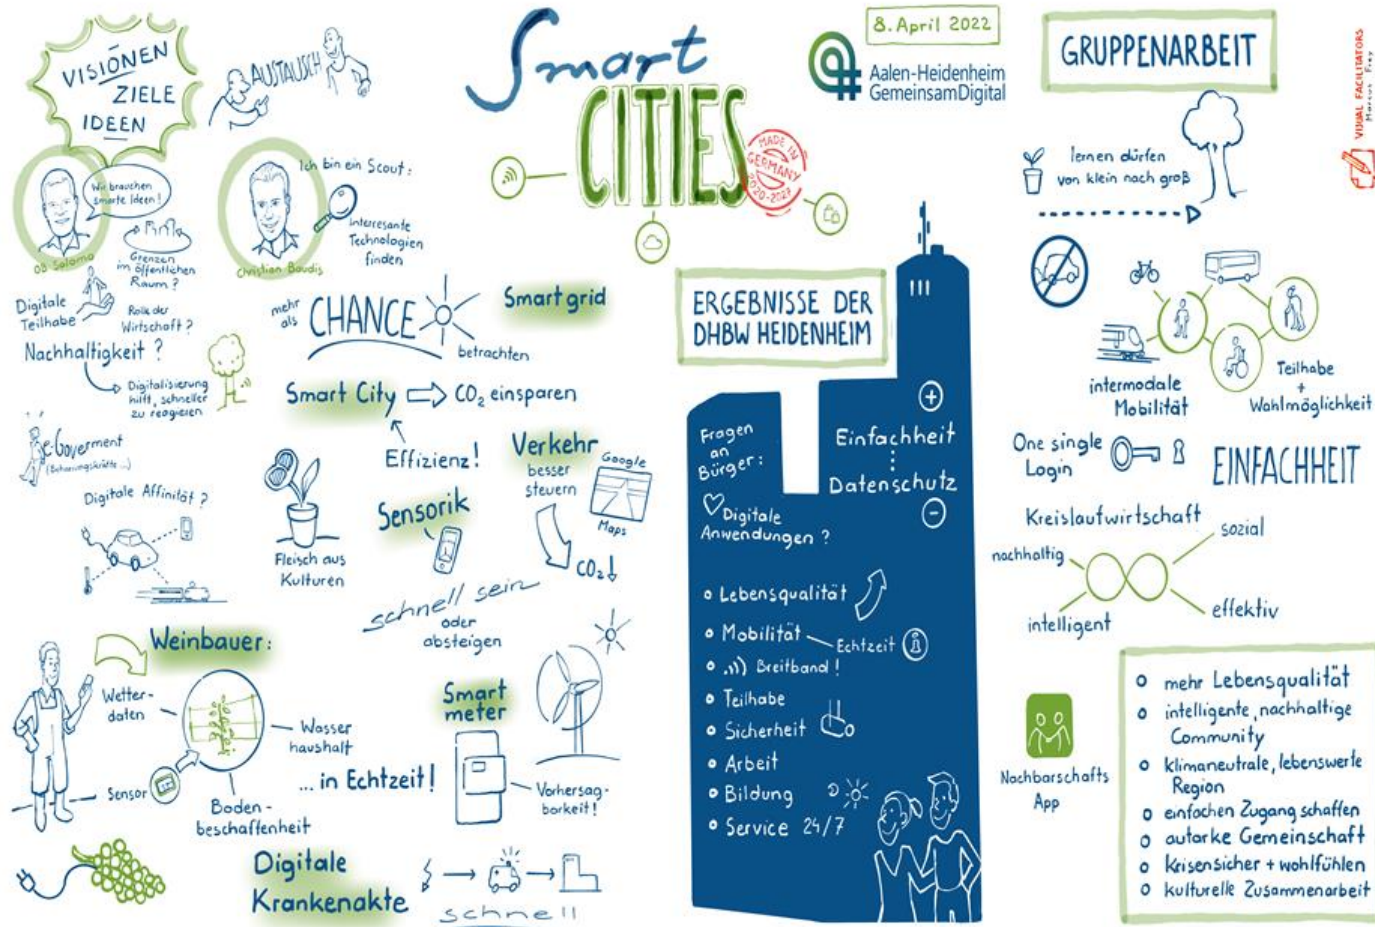 VISIONEN
ZIELE
IDEEN
AUSTAUSCH
Wir brauchen
smarte Ideen!
OB Salomo
Grenzen
im öffentlichen
Raum?
Ich bin ein Scout:
Interessante
Technologien
finden
Christian Baudis
Digitale
Teilhabe
Rolle der
Wirtschaft?
Nachhaltigkeit?
Digitalisierung
hilft, schneller
zu reagieren
e-Goverment
(Beharrungskräfte...)
Digitale Affinität?
mehr
als
CHANCE
betrachten
Smart grid
Smart City
CO₂ einsparen
Effizienz!
Fleisch aus
Kulturen
Sensorik
Verkehr
besser
steuern
Google
Maps
CO₂↓
schnell sein
oder
absteigen
Weinbauer:
Wetter-
daten
Sensor
Wasser
haushalt
Boden-
beschaffenheit
... in Echtzeit!
Smart
meter
Vorhersag-
barkeit!
Digitale
Krankenakte
schnell
Smart
CITIES
MADE IN
GERMANY
8. April 2022
Aalen-Heidenheim
GemeinsamDigital
ERGEBNISSE DER
DHBW HEIDENHEIM
Fragen
an
Bürger:
Digitale
Anwendungen?
+
Einfachheit
Datenschutz
-
Lebensqualität
Mobilität
Echtzeit
i
Breitband!
Teilhabe
Sicherheit
Arbeit
Bildung
Service 24/7
GRUPPENARBEIT
VISUAL FACILITATORS
Marcus Frey
lernen dürfen
von klein nach groß
intermodale
Mobilität
Teilhabe
+
Wahlmöglichkeit
One single
Login
EINFACHHEIT
Kreislaufwirtschaft
sozial
nachhaltig
intelligent
effektiv
Nachbarschafts
App
mehr Lebensqualität
intelligente, nachhaltige
Community
klimaneutrale, lebenswerte
Region
einfachen Zugang schaffen
autarke Gemeinschaft
Krisensicher + wohlfühlen
kulturelle Zusammenarbeit